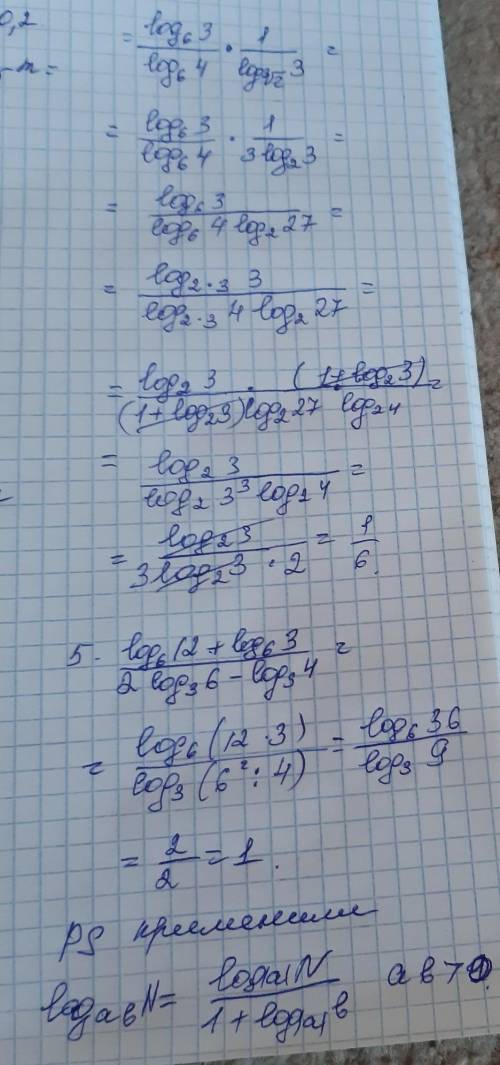 0,2
= log₆3 / log₆4 · 1 / log∛2 3 =
= log₆3 / log₆4 · 1 / 3log₂3 =
= log₆3 / log₆4 log₂27 =
= log₂.₃ 3 / log₂.₃ 4 log₂ 27 =
= log₂ 3 · (1+log₂3) / (1+log₂3)log₂27 · log₂4 =
= log₂ 3 / log₂ 3³ log₂ 4 =
= log₂3 / 3log₂3 · 2 = 1 / 6.
5. log₆12 + log₆3 / 2 log₃6 - log₃4 =
= log₆(12·3) / log₃(6²:4) = log₆36 / log₃ 9
= 2 / 2 = 1.
PS применили
log_ab N = log|a|N / 1 + log|a|b ab>0.